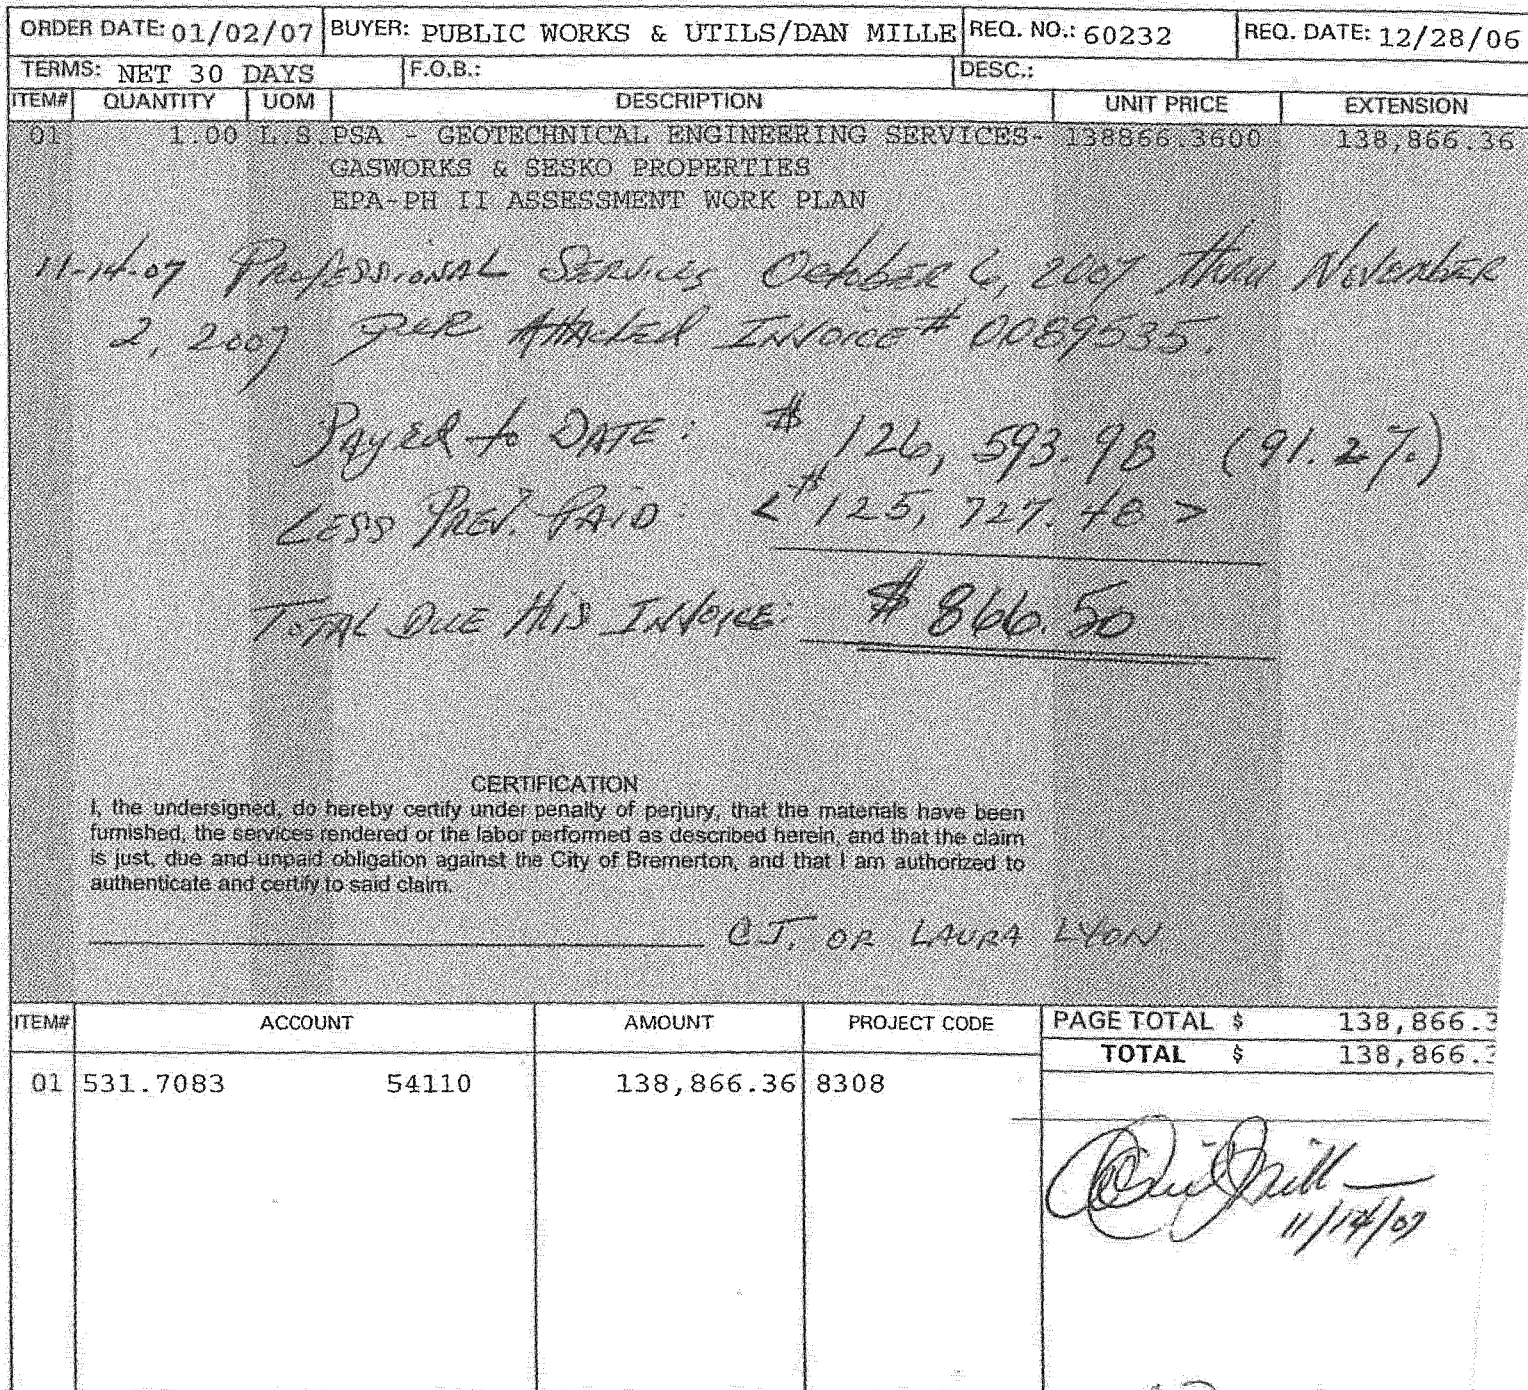 ORDER DATE: 01/02/07 BUYER: PUBLIC WORKS & UTILS/DAN MILLE REQ. NO.: 60232 REQ. DATE: 12/28/06
TERMS: NET 30 DAYS F.O.B.: DESC.:
ITEM# QUANTITY UOM DESCRIPTION UNIT PRICE EXTENSION
01 1.00 L.S. PSA - GEOTECHNICAL ENGINEERING SERVICES- 138866.3600 138,866.36
GASWORKS & SESKO PROPERTIES
EPA-PH II ASSESSMENT WORK PLAN
11-14-07 Professional Services October 6, 2007 thru November
2, 2007 per Attached Invoice # 0089535.
Payed to DATE: $ 126,593.98 (91.2%)
LESS PREV. PAID: <$125,727.48>
TOTAL DUE this INVOICE: $ 866.50
CERTIFICATION
I, the undersigned, do hereby certify under penalty of perjury, that the materials have been
furnished, the services rendered or the labor performed as described herein, and that the claim
is just, due and unpaid obligation against the City of Bremerton, and that I am authorized to
authenticate and certify to said claim.
C.J. OR LAURA LYON
ITEM# ACCOUNT AMOUNT PROJECT CODE PAGE TOTAL $ 138,866.3
TOTAL $ 138,866.3
01 531.7083 54110 138,866.36 8308
11/14/07